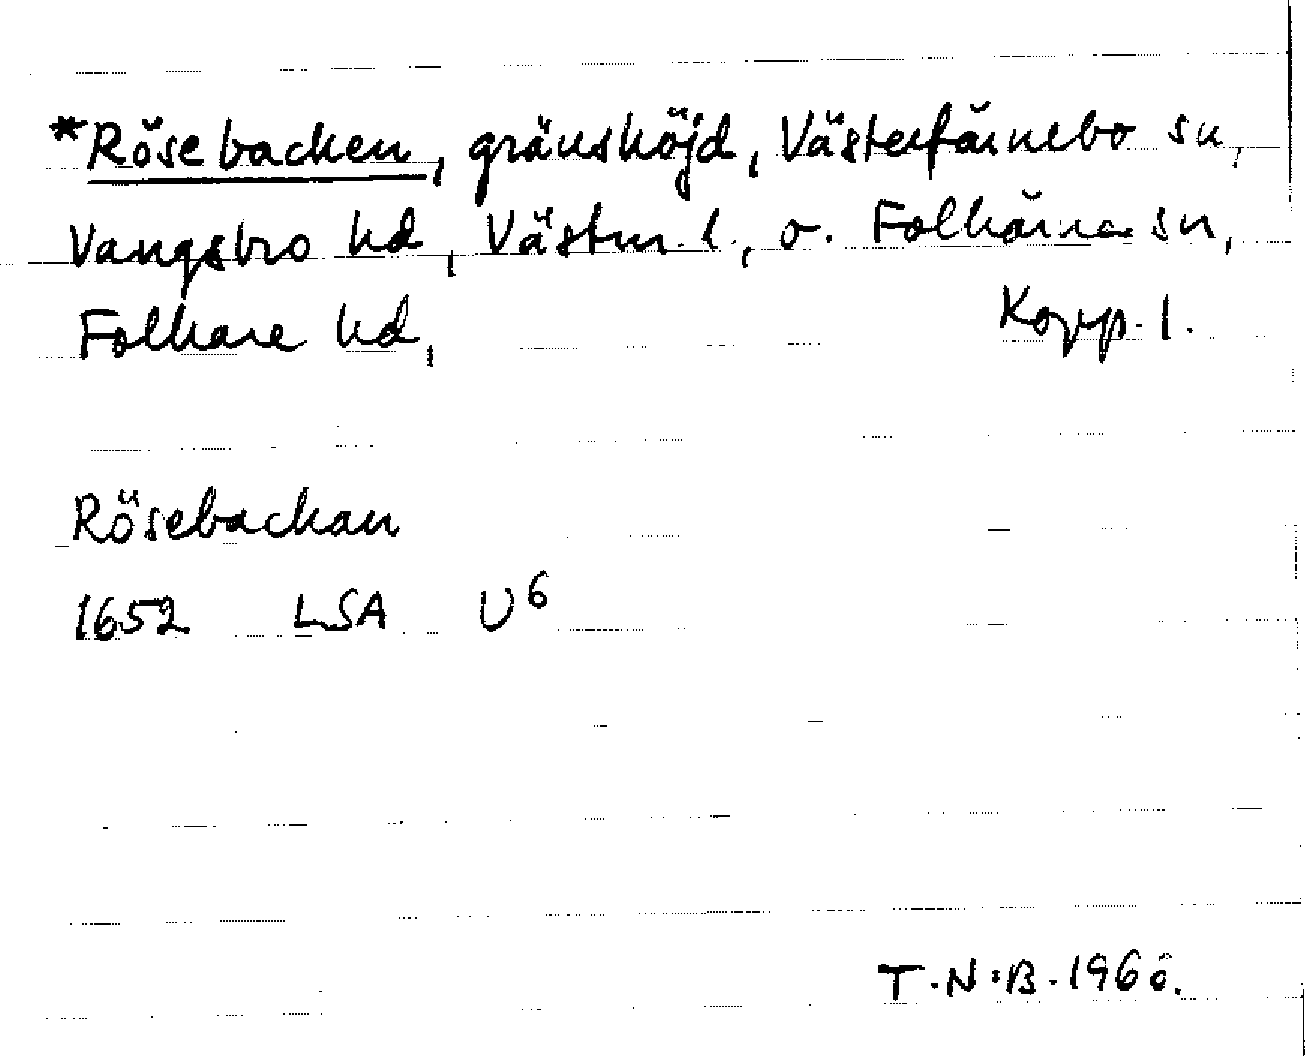 *Rösebacken, gränshöjd, Västerfärnebo sn,
Vangsbro hd, Västm. l., o. Folkärna sn,
Folkare hd, Kopp. l.
Rösebackan
1652 LSA U6
T.N:B. 1966.